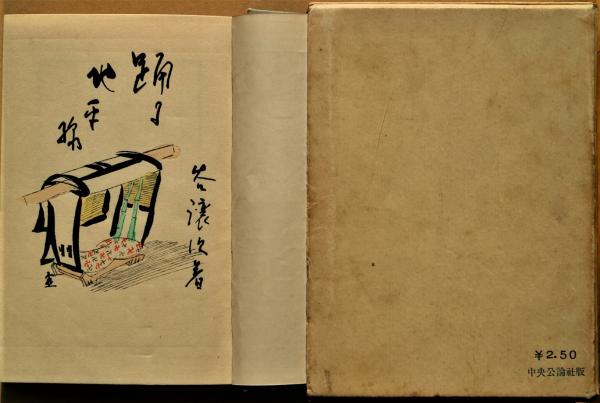 踊る
地平線
谷譲次著
¥2.50
中央公論社版